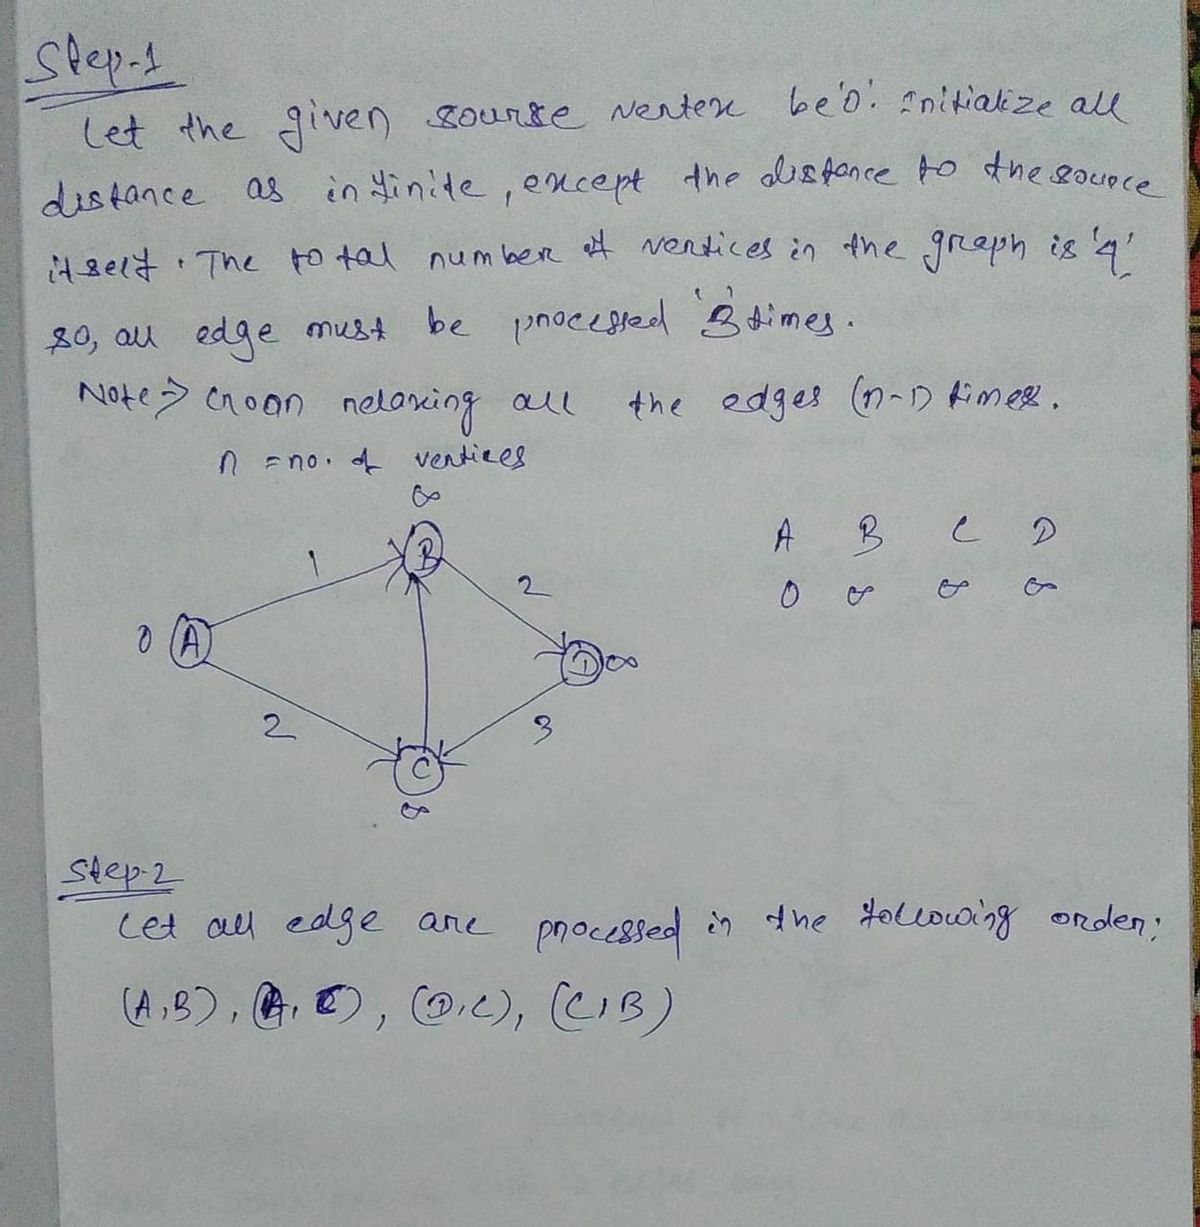 Step-1
Let the given sourse vertex be '0'. Initialize all
distance as infinite, except the distance to the source
itself. The total number of vertices in the graph is '4'
so, all edge must be processed '3' times.
Note ⇒ relaxing all the edges (n-1) times.
n = no. of vertices
∞
A B C D
0 ∞ ∞ ∞
1
B
2
0 A
D ∞
2
3
C
∞
Step-2
Let all edge are processed in the following order:
(A,B), (A,C), (D,C), (C,B)